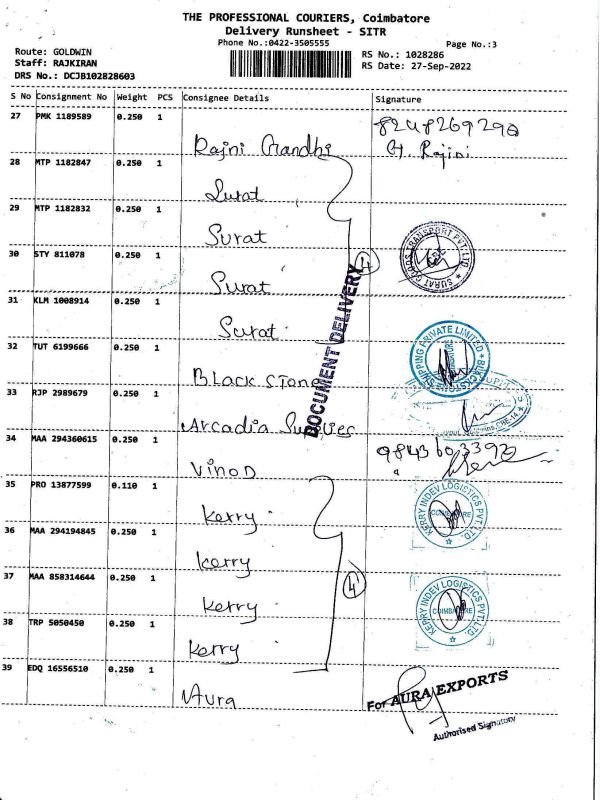 THE PROFESSIONAL COURIERS, Coimbatore
Delivery Runsheet - SITR
Phone No.:0422-3505555
Page No.:3
Route: GOLDWIN
Staff: RAJKIRAN
DRS No.: DCJB102828603
RS No.: 1028286
RS Date: 27-Sep-2022
S No Consignment No Weight PCS Consignee Details Signature
27 PMK 1189589 0.250 1 Rajni Gandhi
G. Rajini
28 MTP 1182847 0.250 1 Surat
29 MTP 1182832 0.250 1 Surat
30 STY 811078 0.250 1 Surat
4
SURAT GOODS TRANSPORT PVT. LTD
31 KLM 1008914 0.250 1 Surat
DOCUMENT DELIVERY
32 TUT 6199666 0.250 1 Black Stone
SHIPPING PRIVATE LIMITED
33 RJP 2989679 0.250 1 Arcadia
34 MAA 294360615 0.250 1 Vinod
35 PRO 13877599 0.110 1 Kerry
KERRY INDEV LOGISTICS PVT. LTD.
COIMBATORE
36 MAA 294194845 0.250 1 Kerry
37 MAA 858314644 0.250 1 Kerry
4
KERRY INDEV LOGISTICS PVT. LTD.
COIMBATORE
38 TRP 5050450 0.250 1 Kerry
39 EDQ 16556510 0.250 1 Aura
For AURA EXPORTS
Authorised Signatory